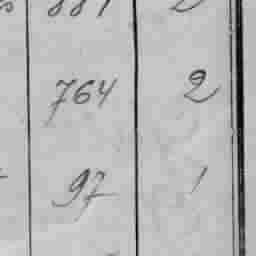 764 2
97 1